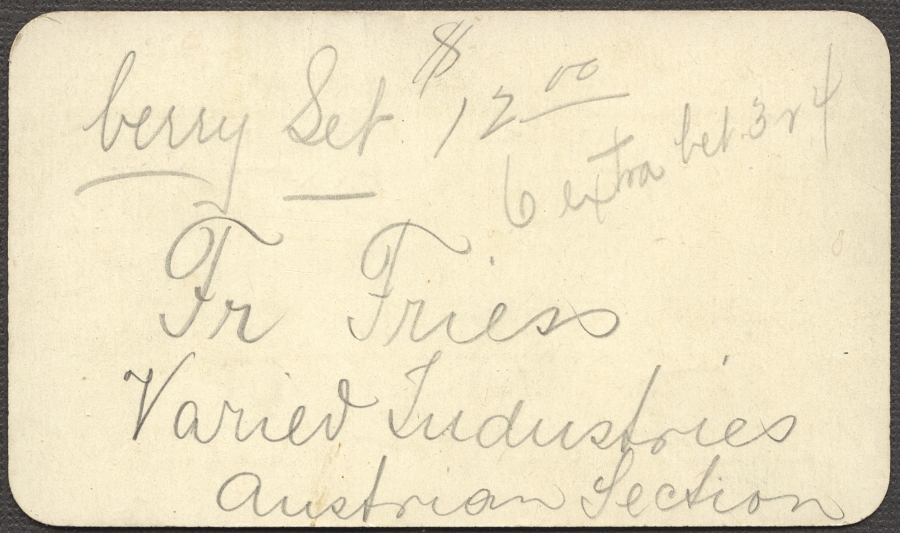 berry Set $12.00
6 extra bet. 3 & 4
Fr Friess
Varied Industries
Austrian Section